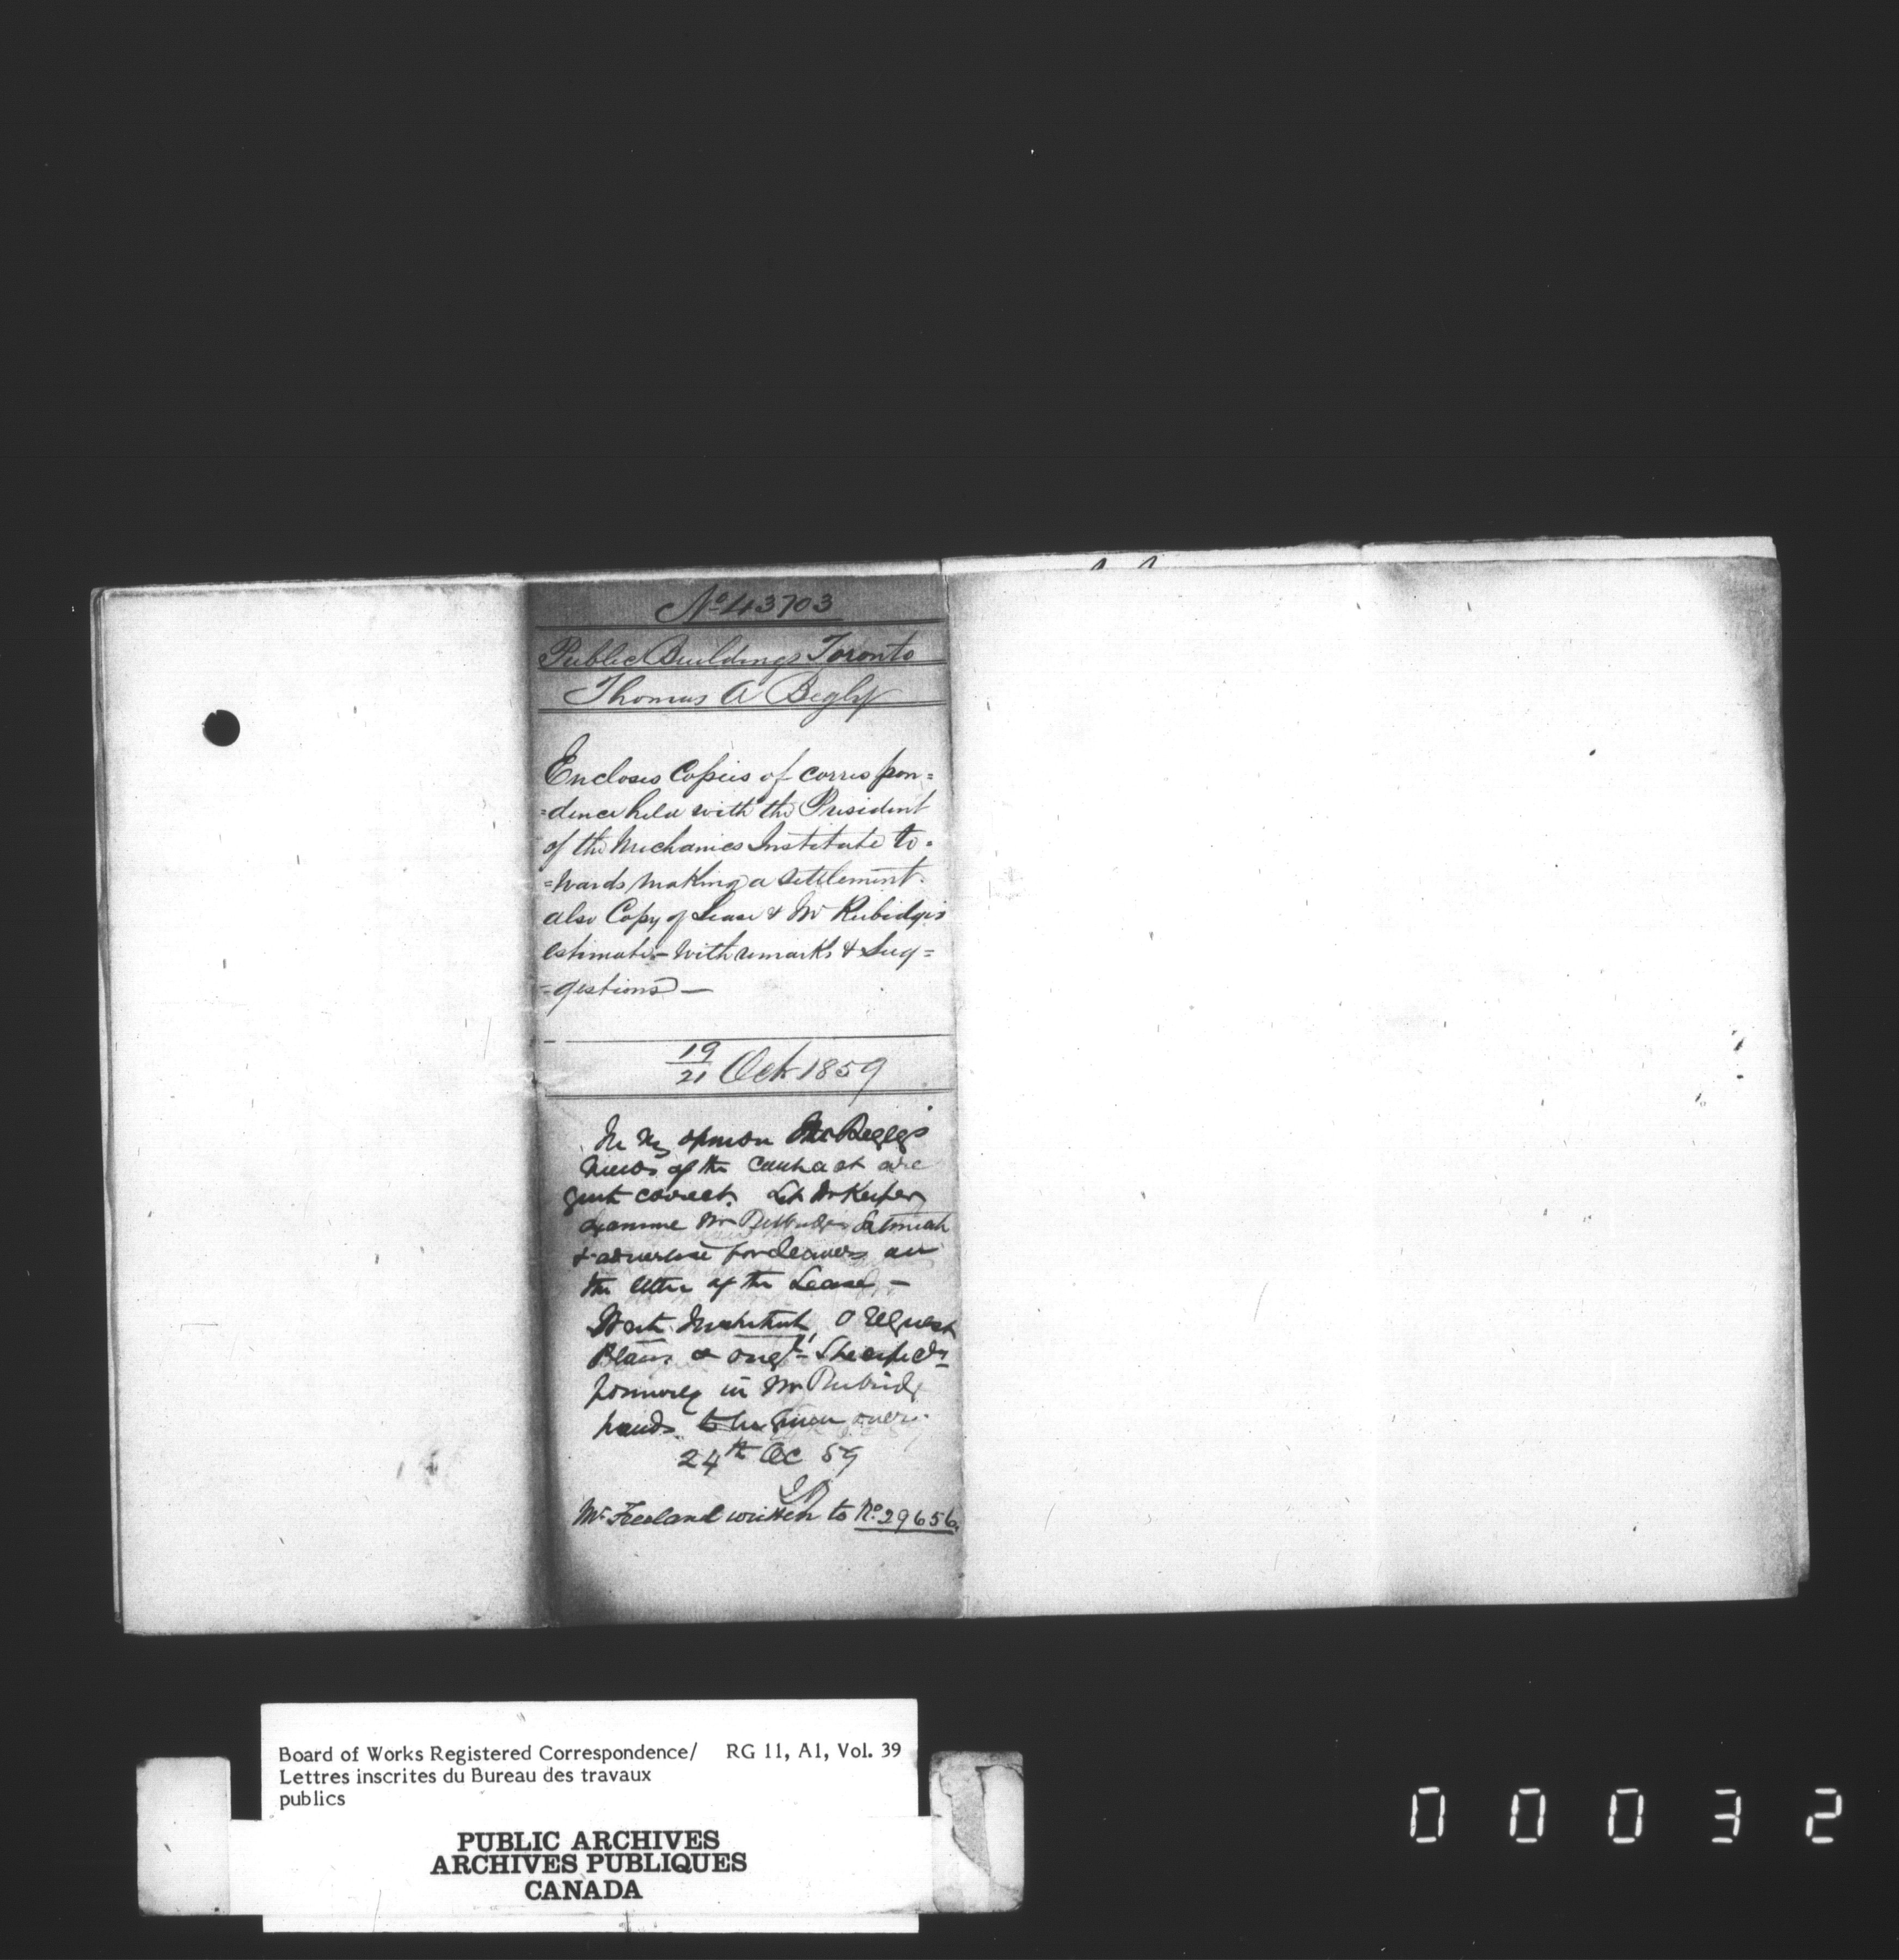 No 43703
Public Buildings Toronto
Thomas A Begly
Encloses Copies of correspon=
=dence held with the President
of the Mechanics Institute to=
=wards making a settlement.
also Copy of Lease & Mr Rubidge's
estimate - with remarks & Sug=
=gestions —
19/21 Oct 1859
In my opinion Mr Begly's
views of the contract are
quite correct. Let Mr Keefer
examine Mr Rubidge's Estimate
& advertise for
the letter of the Lease —
request
Plans & orig'l Specific'n
formerly in Mr Rubidge
hands to be given over.
24th Oc 59
JR
Mr Freeland written to No. 29656.
Board of Works Registered Correspondence/ RG 11, A1, Vol. 39
Lettres inscrites du Bureau des travaux
publics
PUBLIC ARCHIVES
ARCHIVES PUBLIQUES
CANADA
0 0 0 3 2